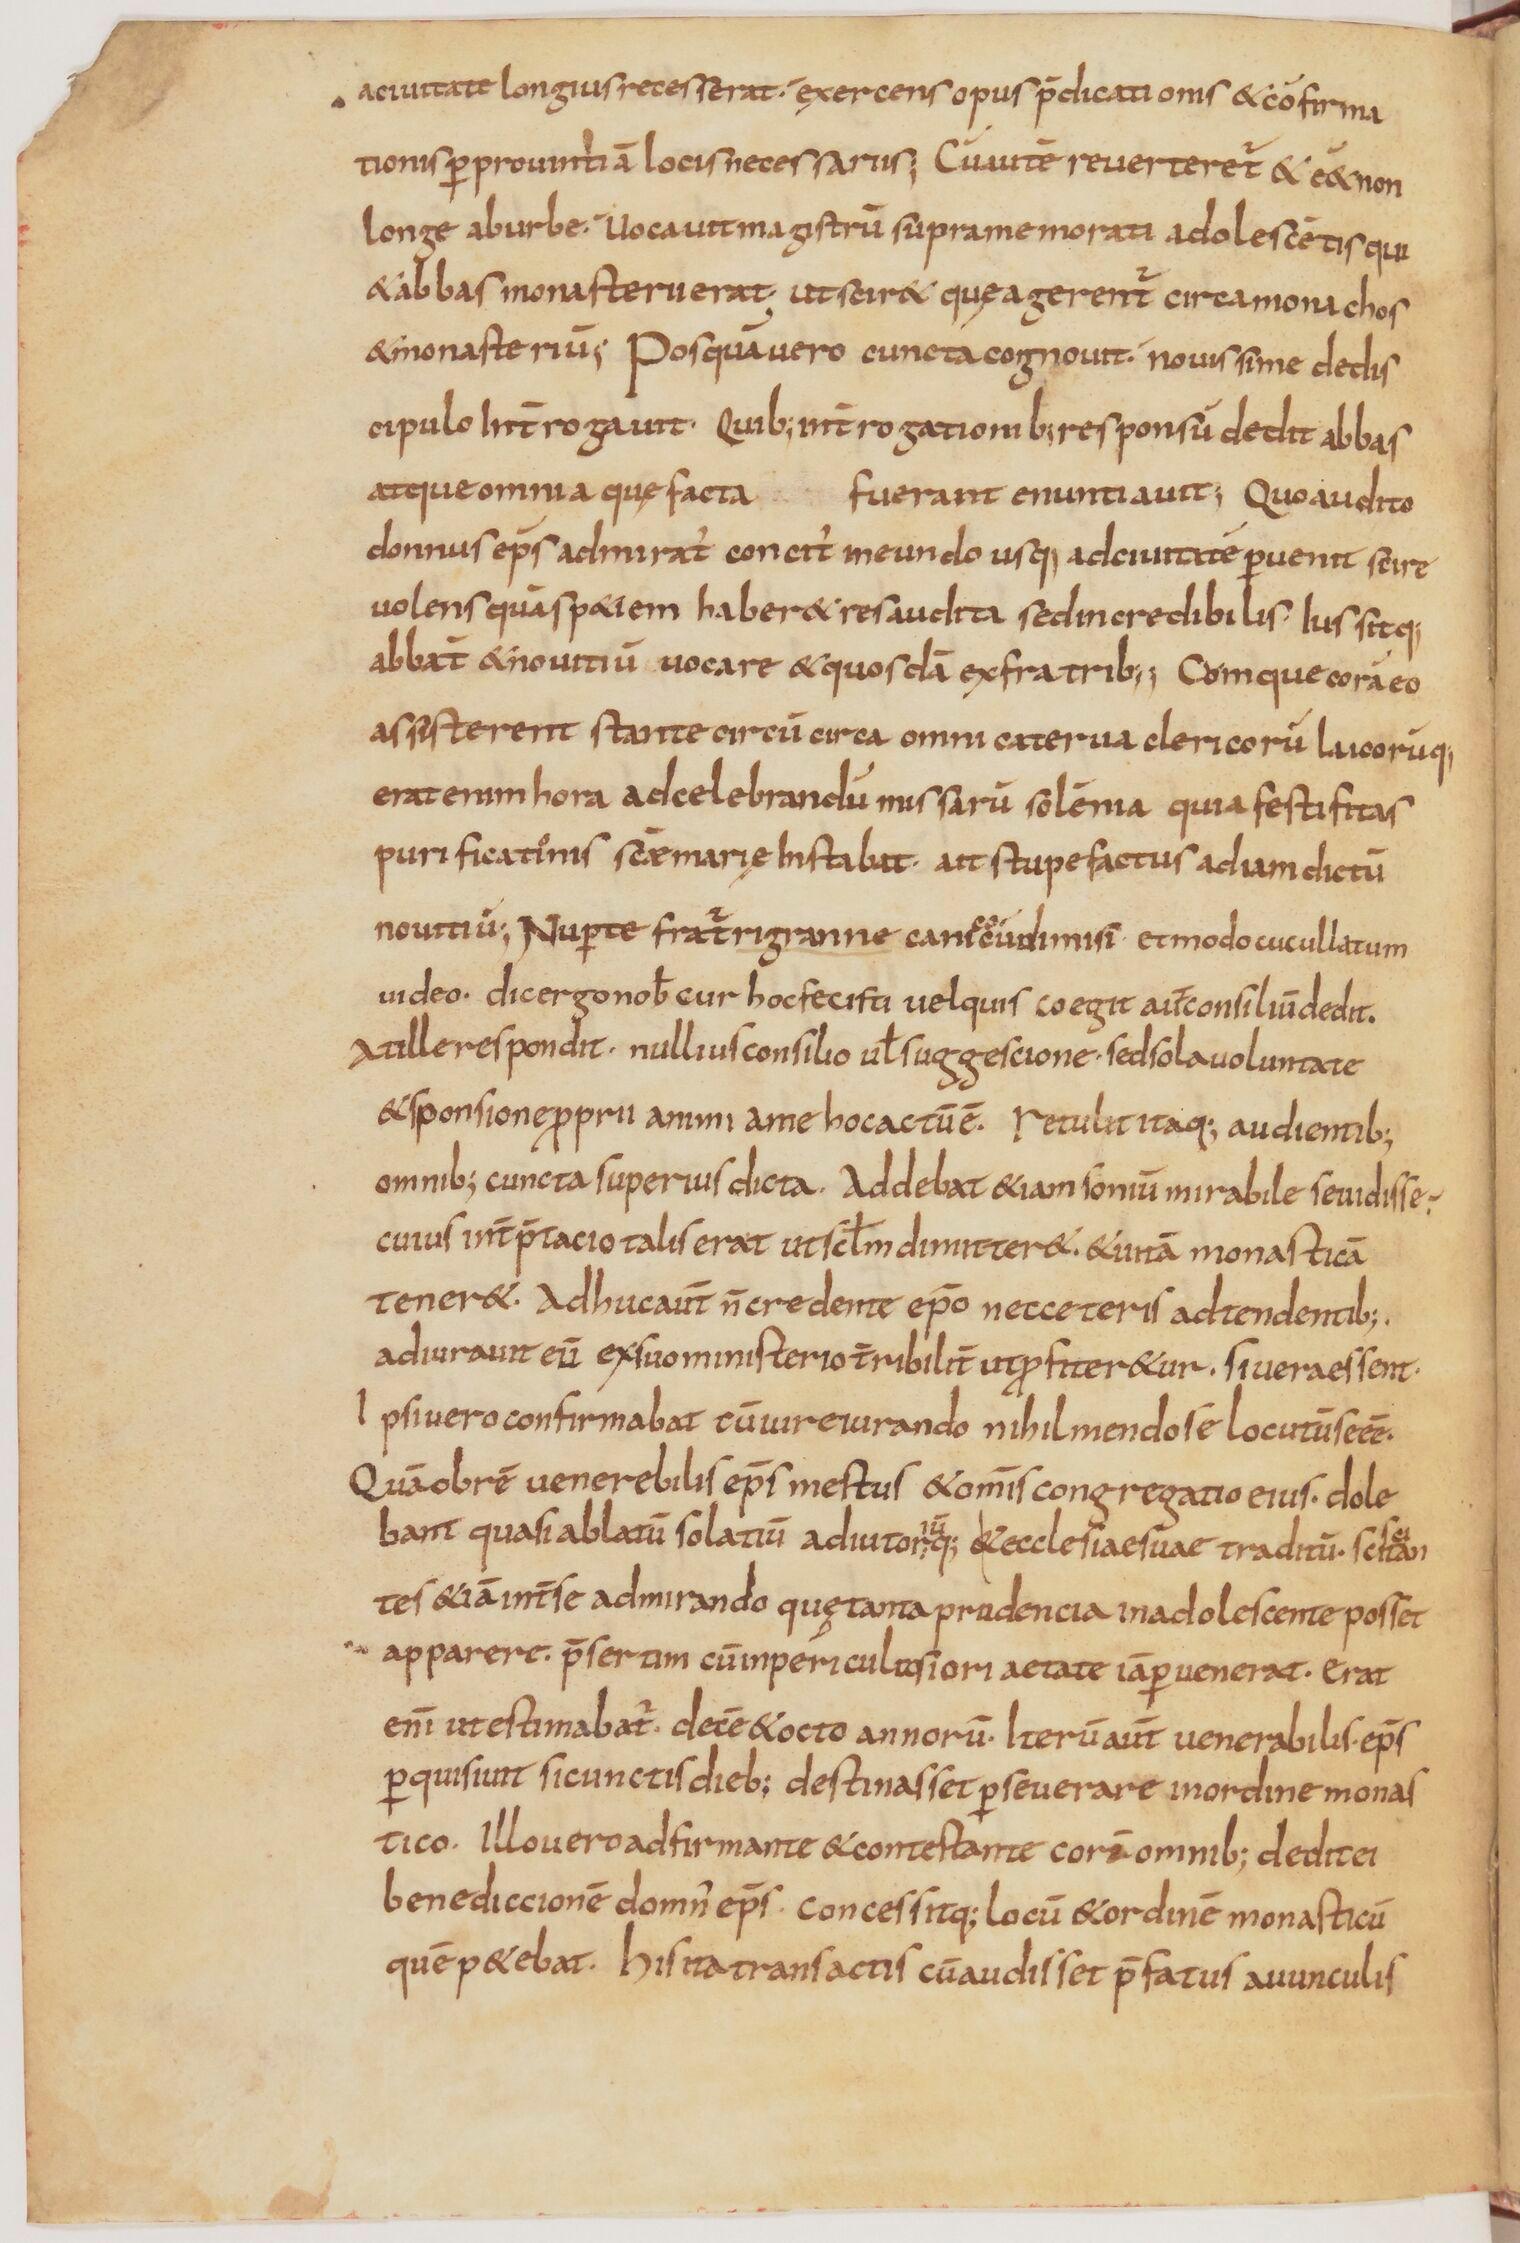 aciuitate longius recesserat. exercens opus p̄dicationis & cōfirma
tionis ꝑ prouintiā locis necessariis; Cū autē reuerteret᷑ & eēt non
longe aburbe. Uocauit magistrū supramemorati adolescētis qui
& abbas monasterii erat, ut scir& quę agerent᷑ circa monachos
& monasteriū; Posquā uero cuncta cognouit. nouissime de dis
cipulo int̄rogauit. Quib; int̄rogationib; responsū dedit abbas
atque omnia quę facta fuerant enuntiauit; Quo audito
donnus ep̄s admirat᷑ concit᷑ in eundo usq; ad ciuitatē ꝑuenit scire
uolens quā sp&iem haber& res audita sed incredibilis. Iussitq;
abbat̄ & nouitiū uocare & quosdā ex fratrib;; Comque corā eo
assisterent stante circū circa omni caterua clericorū laicorūq;
erat enim hora ad celebrandū missarū solēnia quia festifitas
purificationis scǣ marię instabat. ait stupefactus ad iam dictū
nouitiū; Nuper te frat᷑
video. dic ergo nob̄ cur hoc fecisti vel quis coegit aut̄ consiliū dedit.
At ille respondit. nullius consilio ul̄ suggescione. sed sola uoluntate
& sponsione ꝓprii animi a me hoc actū ē. Retulit itaq; audientib;
omnib; cuncta superius dicta. Addebat & iam soniū mirabile se uidisse.
cuius int̄p̄tacio talis erat ut scl̄m dimitter&. & uitā monasticā
tener&. Adhuc aut̄ n̄ credente ep̄o nec ceteris adtendentib;.
adiurauit eū ex suo ministerio t̄ribilit̄ ut ꝓfiter&ur. si uera essent.
Ipsi uero confirmabat cū iureiurando nihil mendose locutū se eē.
Quā ob rē uenerebilis ep̄s mestus & om̄is congregatio eius. dole
bant quasi ablatū solatiū adiutoriūq; & ecclesiae suae traditū. scisitan
tes & iā int̄ se admirando quę tanta prudencia in adolescente posset
apparere. p̄sertim cū in periculosiori aetate iā ꝑuenerat. Erat
eni̅ ut estimabat᷑. decē & octo annorū. Iterū aut̄ uenerabilis. ep̄s
ꝑquisiuit si cunctis dieb; destinasset ꝑseuerare in ordine monas
tico. Illo uero adfirmante & contestante corā omnib; dedit ei
benediccionē domn̄ ep̄s. Concessitq; locū & ordinē monasticū
quē p&ebat. His ita transactis cū audisset p̄fatus auunculis